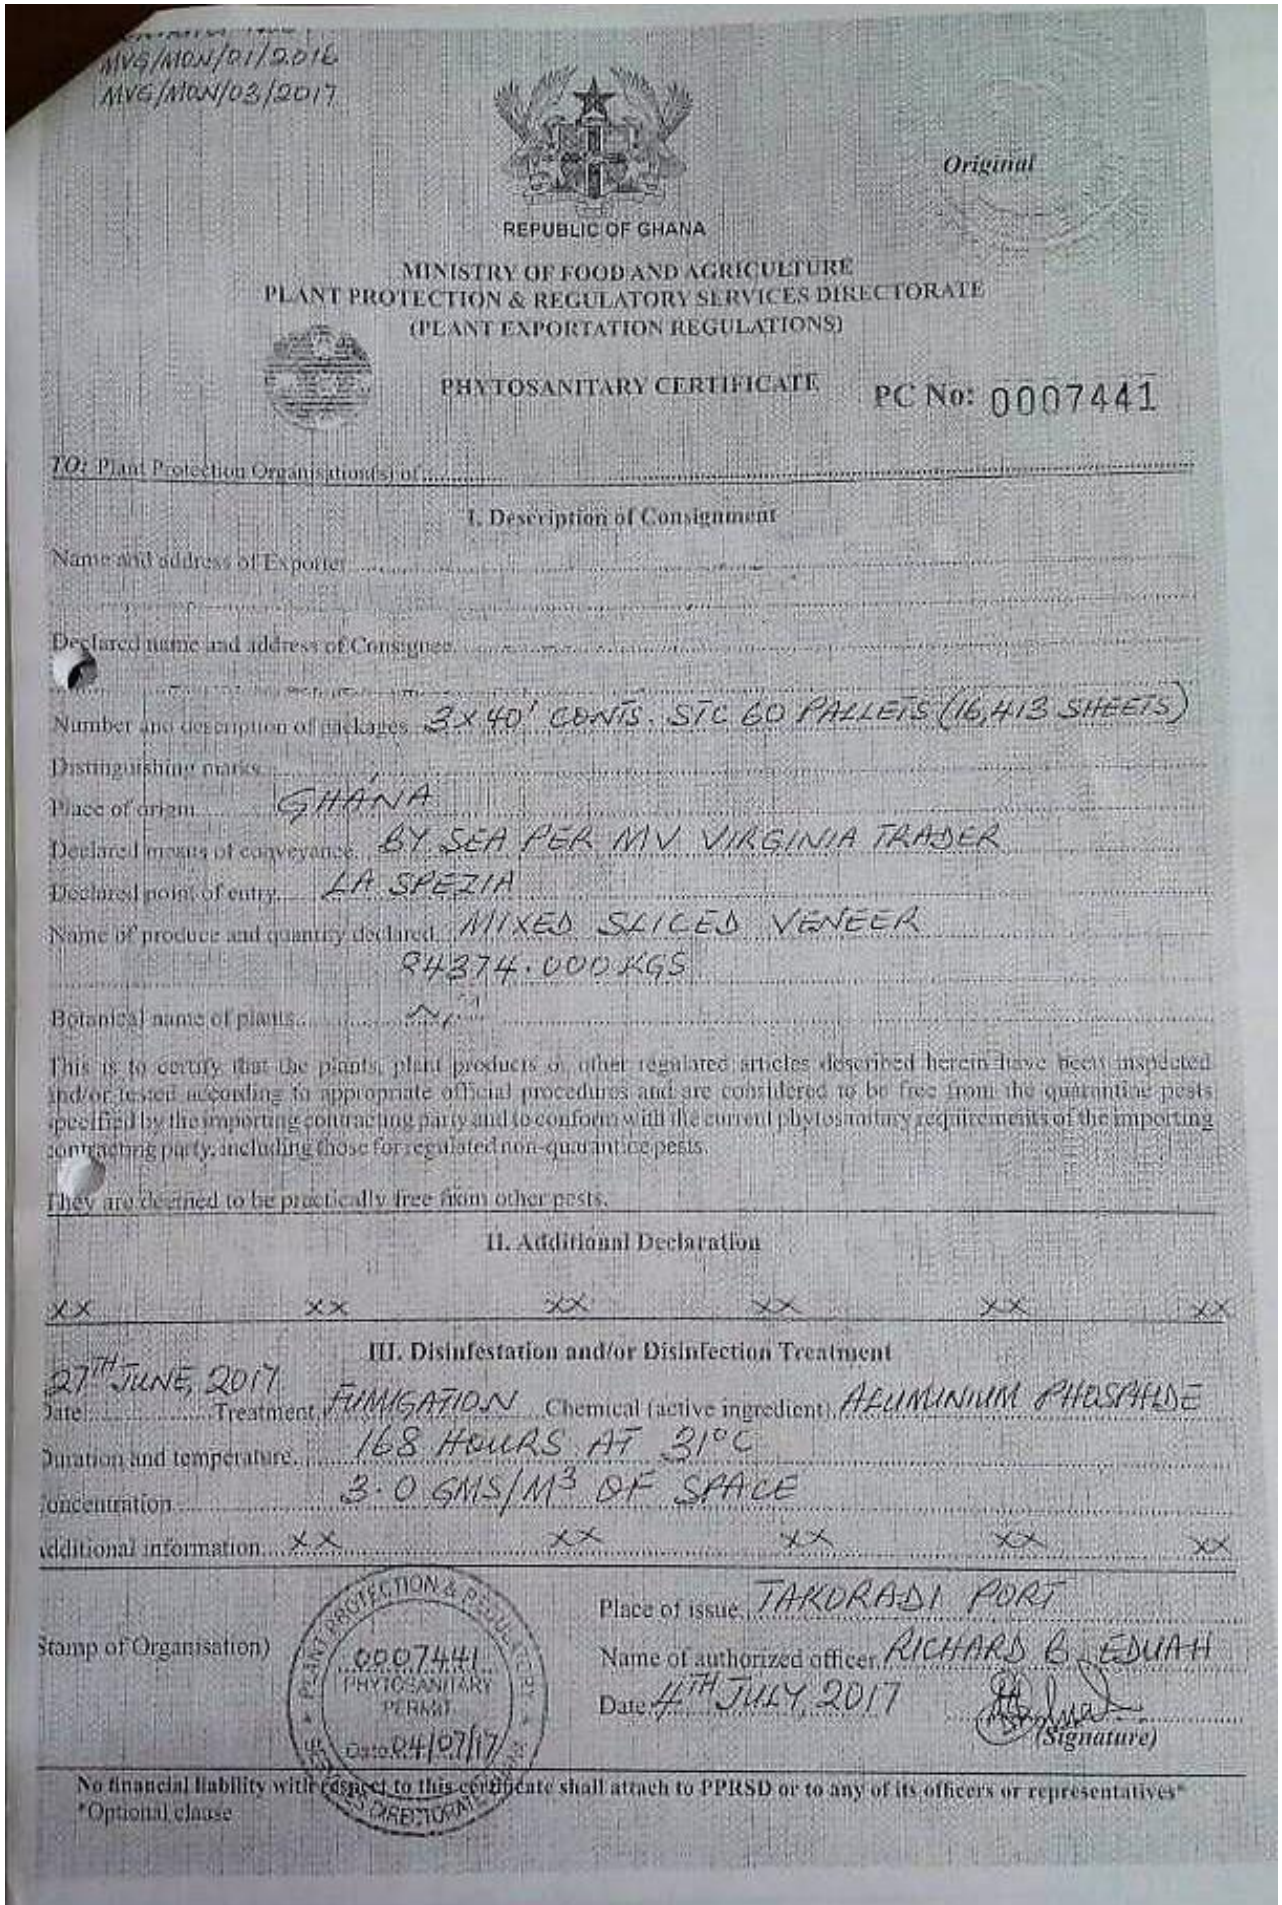 MVG/MON/01/2016
MVG/MON/03/2017
Original
REPUBLIC OF GHANA
MINISTRY OF FOOD AND AGRICULTURE
PLANT PROTECTION & REGULATORY SERVICES DIRECTORATE
(PLANT EXPORTATION REGULATIONS)
PHYTOSANITARY CERTIFICATE PC No: 0007441
TO: Plant Protection Organisation(s) of
I. Description of Consignment
Name and address of Exporter
Declared name and address of Consignee
Number and description of packages 3X40' CONTS. STC 60 PALLETS (16,413 SHEETS)
Distinguishing marks
Place of origin GHANA
Declared means of conveyance BY SEA PER MV VIRGINIA TRADER
Declared point of entry LA SPEZIA
Name of produce and quantity declared MIXED SLICED VENEER
84374.000KGS
Botanical name of plants
This is to certify that the plants, plant products or other regulated articles described herein have been inspected
and/or tested according to appropriate official procedures and are considered to be free from the quarantine pests
specified by the importing contracting party and to conform with the current phytosanitary requirements of the importing
contracting party, including those for regulated non-quarantice pests.
They are deemed to be practically free from other pests.
II. Additional Declaration
XX XX XX XX XX XX
III. Disinfestation and/or Disinfection Treatment
27TH JUNE, 2017
Date Treatment FUMIGATION Chemical (active ingredient) ALUMINIUM PHOSPHIDE
Duration and temperature 168 HOURS AT 31°C
Concentration 3.0 GMS/M3 OF SPACE
Additional information XX XX XX XX XX
Place of issue TAKORADI PORT
Stamp of Organisation)
Name of authorized officer RICHARD B. EDUAH
Date 4TH JULY, 2017
(Signature)
PLANT PROTECTION & REGULATORY SERVICES DIRECTORATE
0007441
PHYTOSANITARY
PERMIT
Date 04/07/17
No financial liability with respect to this certificate shall attach to PPRSD or to any of its officers or representatives*
*Optional clause